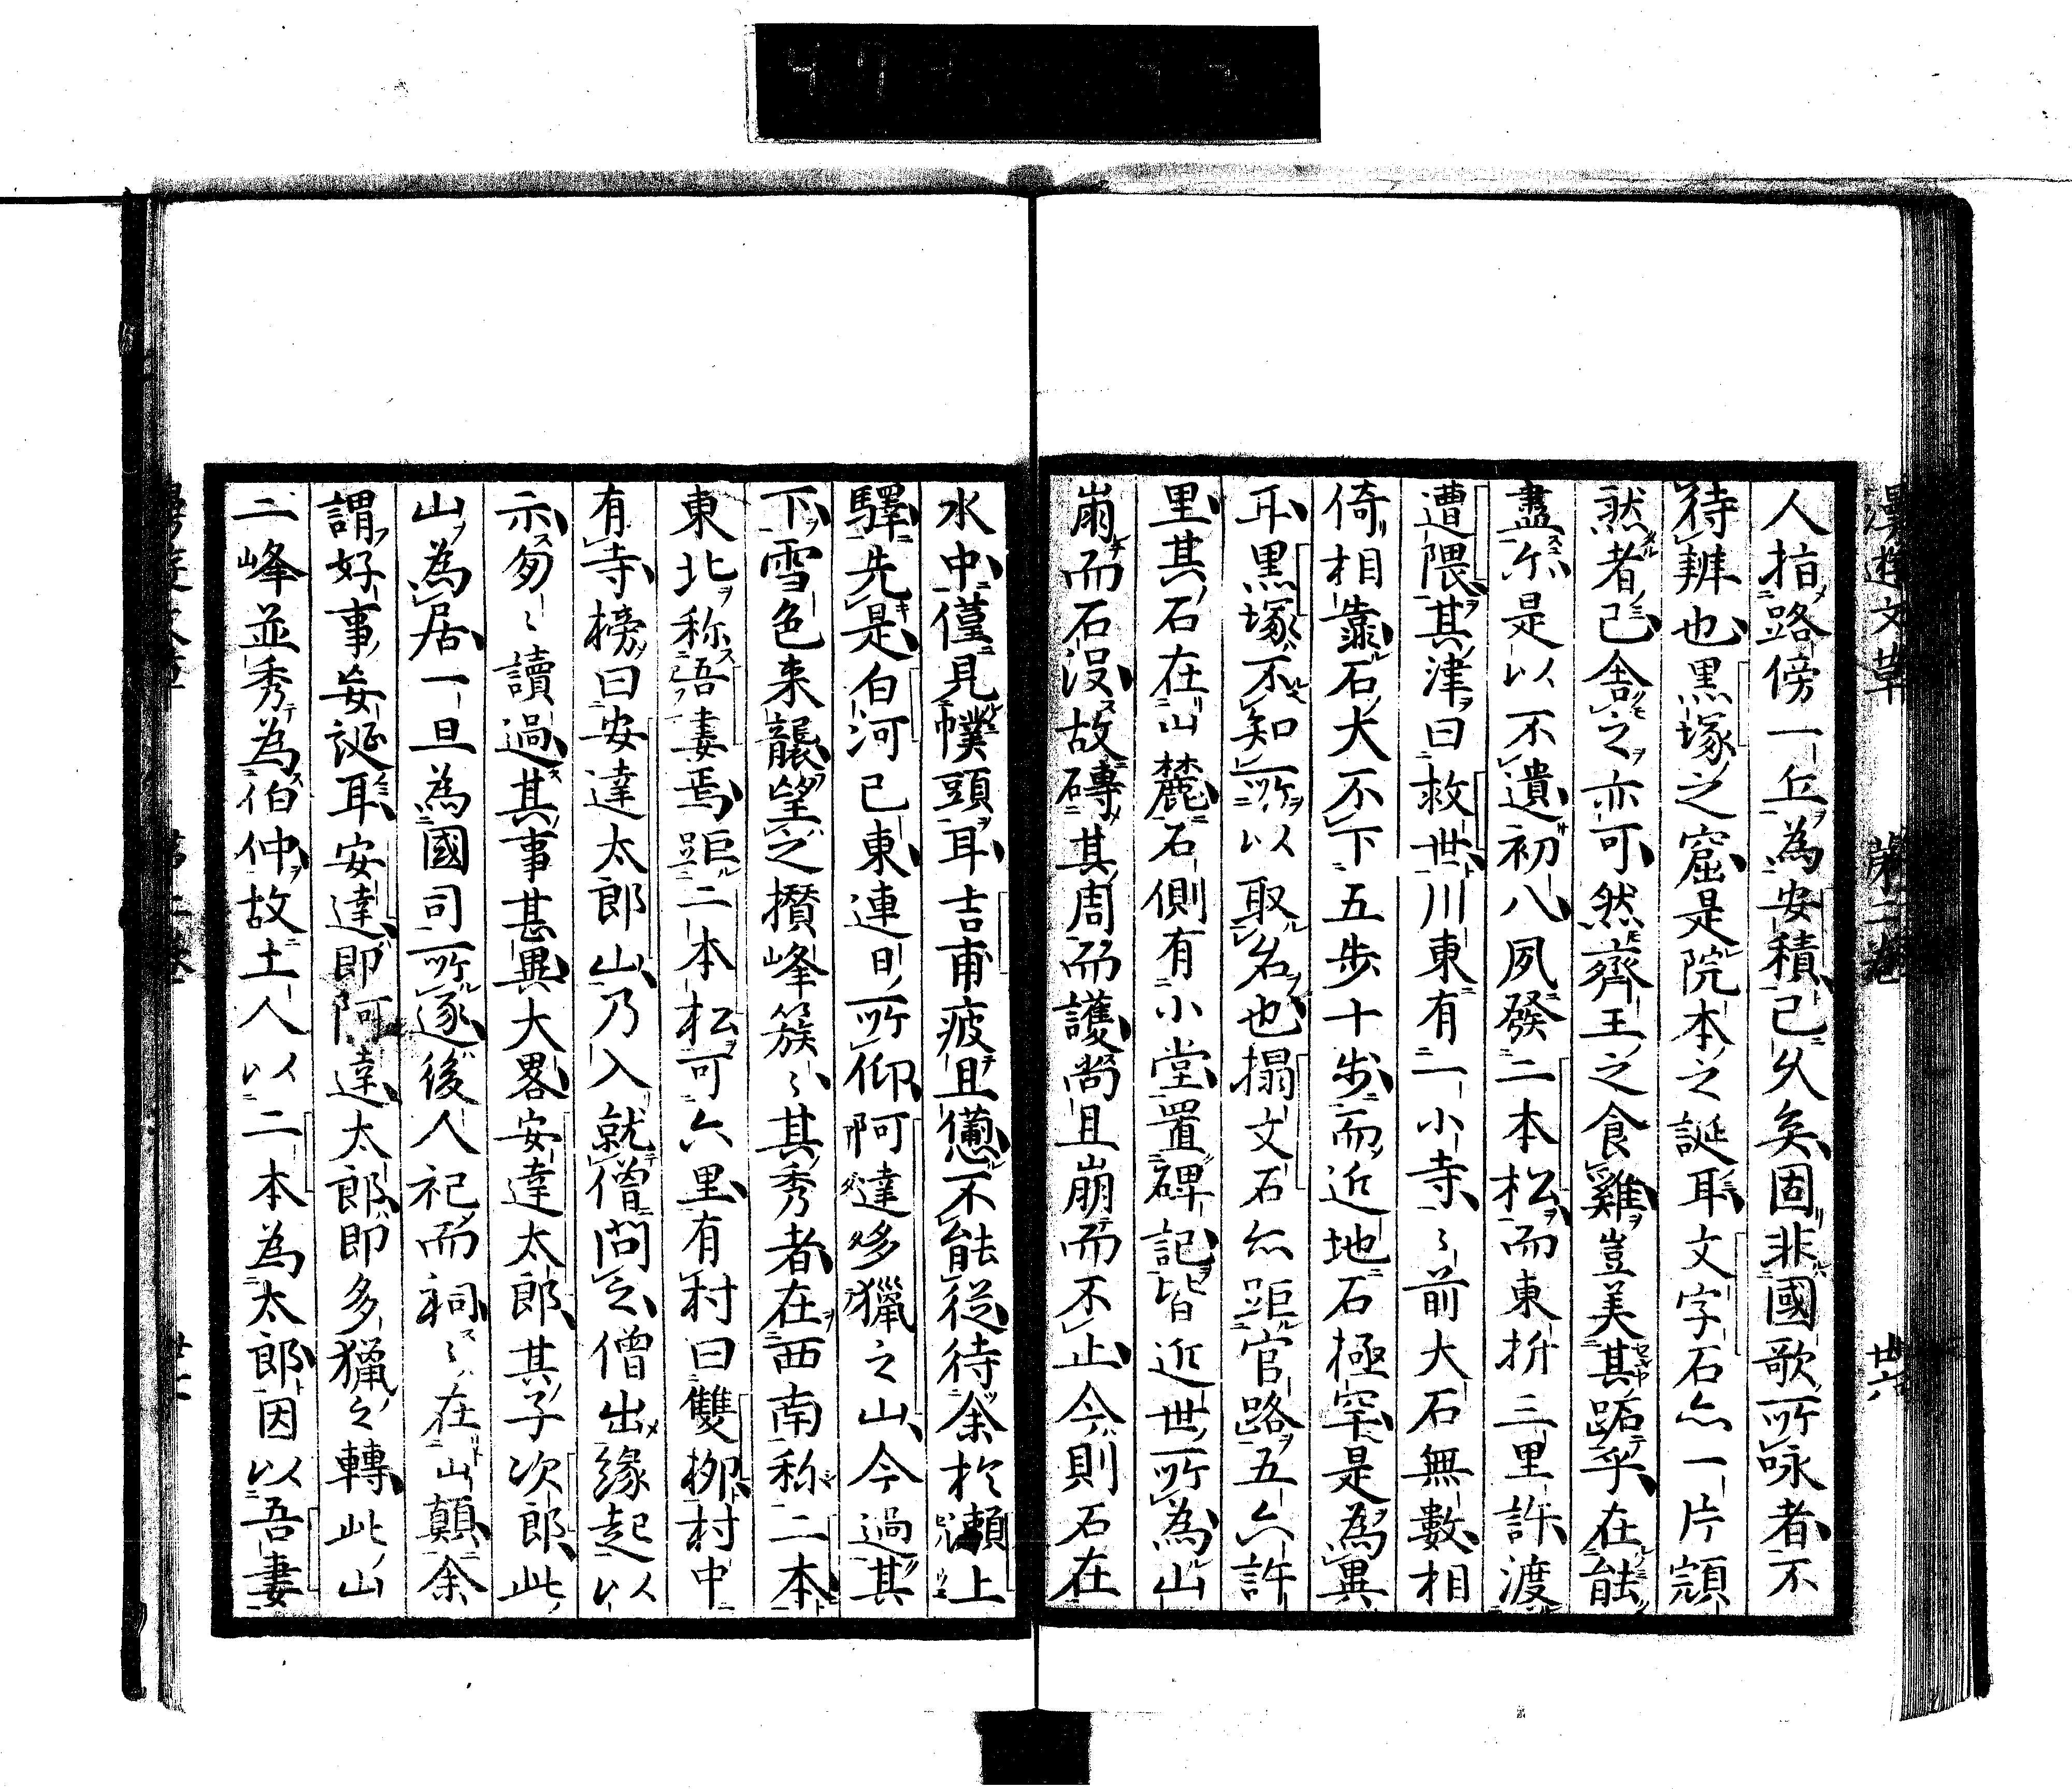 漫遊文草 第二卷 廿六
人指路傍一丘為安積已久矣固非國歌所咏者不
待辨也黒塚之窟是院本之誕耳文字石亦一片頑
然者已舎之亦可然齊王之食雞豈美其跖乎在能
盡尓是以不遺初八夙發二本松而東折三里許渡
遭隈其津曰救世川東有一小寺〻前大石無數相
倚相靠石大不下五歩十歩而近地石極罕是為異
耳黒塚不知所以取名也搨文石亦距官路五六許
里其石在山麓石側有小堂置碑記皆近世所為山
崩而石没故磚其周而護尚且崩而不止今則石在
水中僅見幞頭耳吉甫疲且憊不能従待余於瀬上
驛先是白河已東連日所仰阿達多獵之山今過其
下雪色来襲望之攅峰簇〻其秀者在西南称二本
東北称吾妻焉距二本松可六里有村曰雙栁村中
有寺榜曰安達太郎山乃入就僧問之僧出縁起以
示匆〻讀過其事甚異大畧安達太郎其子次郎此
山為居一旦為國司所逐後人祀而祠〻在山顛余
謂好事妄誕耳安達即阿達太郎即多獵之轉此山
二峰並秀為伯仲故土人以二本為太郎因以吾妻